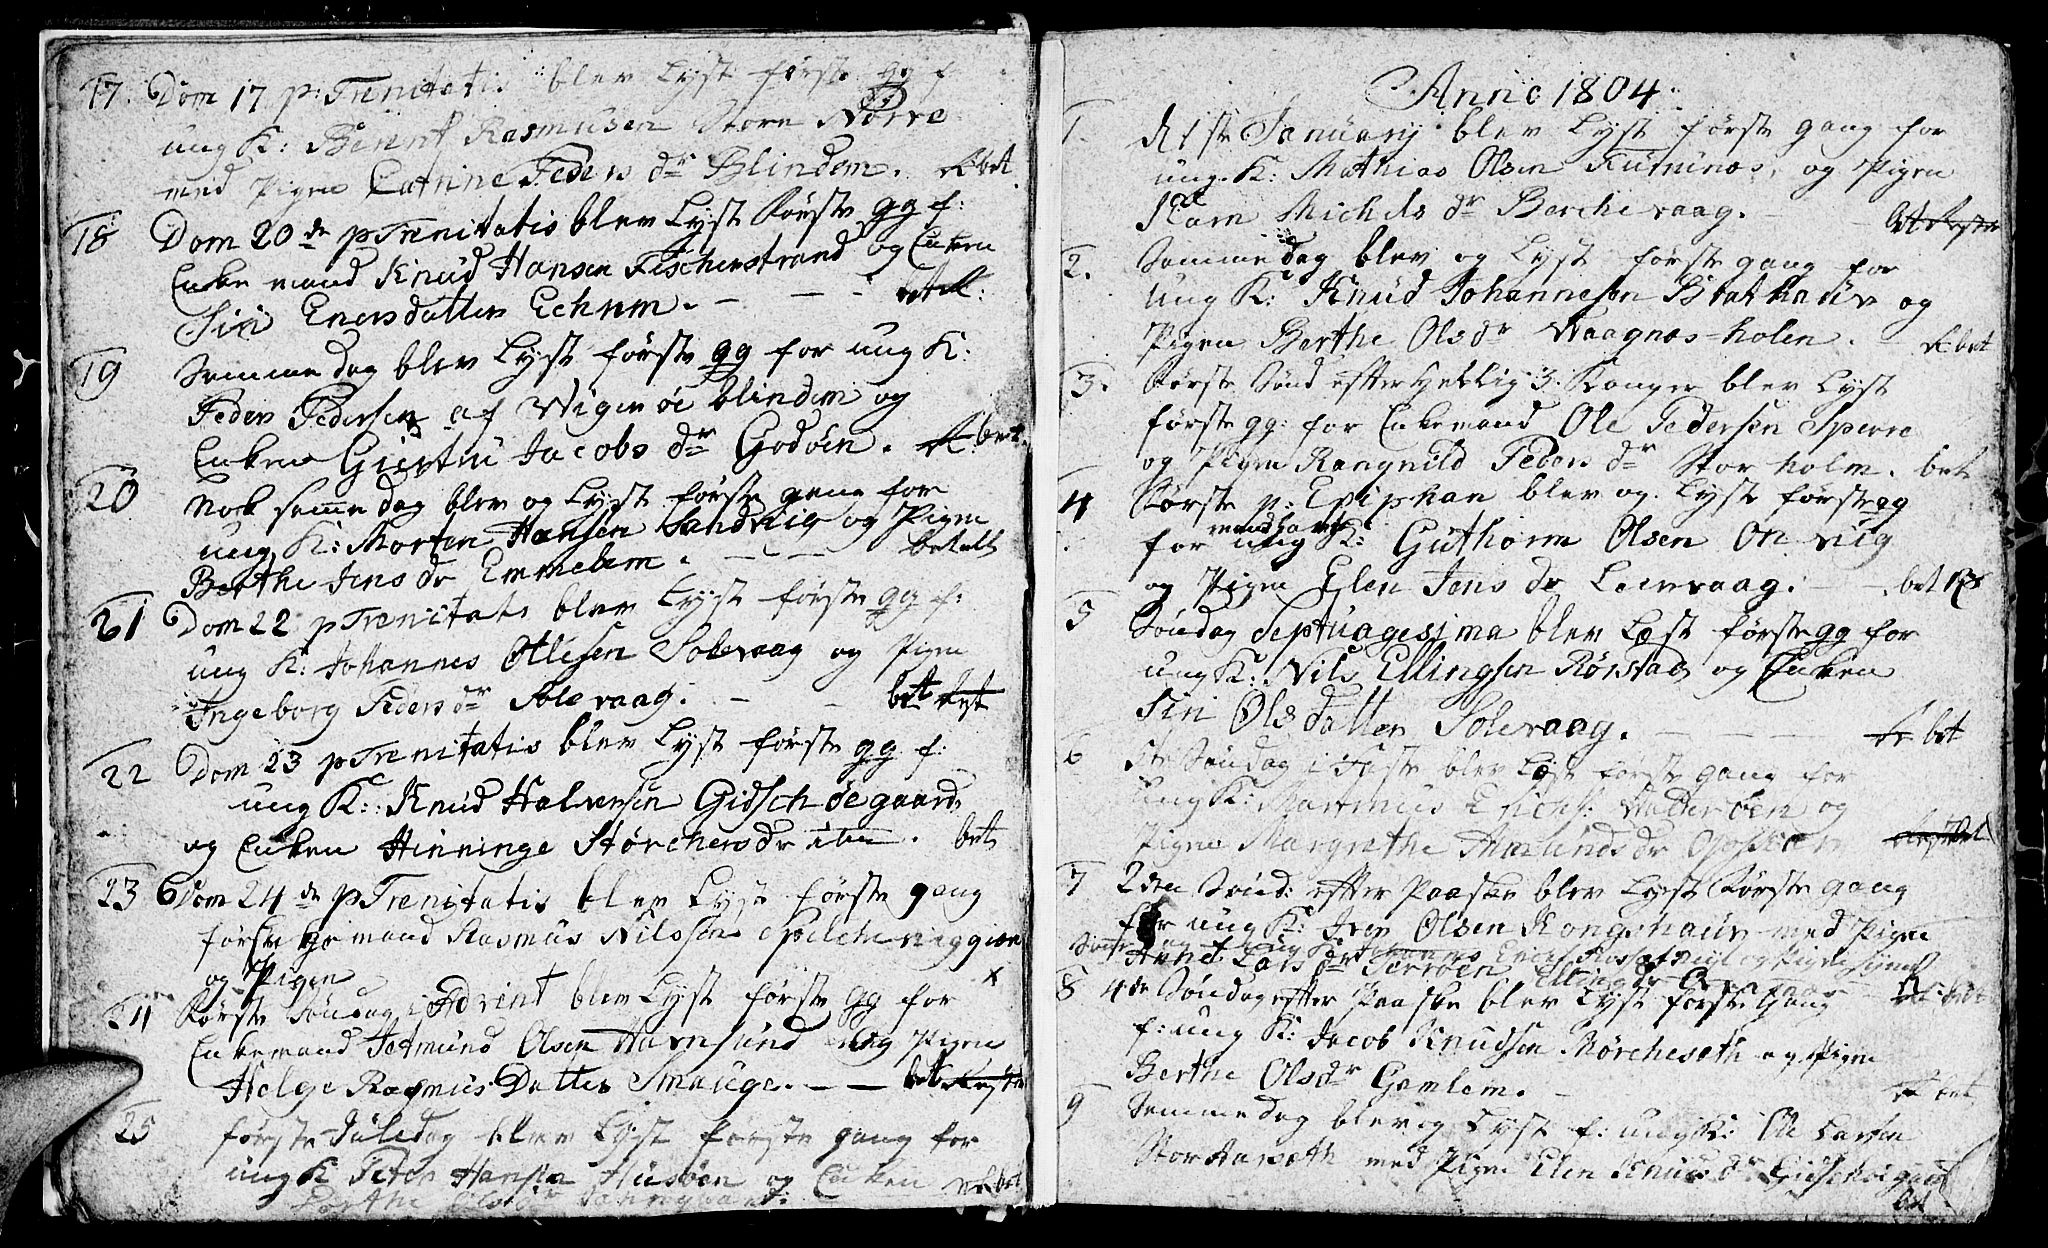 17. Dom 17 p: Trenitatis blev Lyst første gg f
ung K: Bennt Rasmusen Store Nørve
med Pigen Catrine Peders dr Blindem. bet
18 Dom 20de p Trenitatis blev Lyst første gg f:
Enke mand Knud Hansen Fischerstrand og Enken
Siri Enersdatter Echrem.
19 Samme dag blev Lyst første gg for ung K:
Peder Pedersen af Wigersøe blindem og
Enken Giertru Jacobs dr Godøen. bet
20 Nok samme dag blev og Lyst første gang for
ung K: Morten Hansen Sandvig og Pigen
Berthe Jens dr Emmelem. betalt
21 Dom 22 p Trenitatis blev Lyst første gg f:
ung K: Johannes Ollesen Solevaag og Pigen
Ingeborg Peders dr Solevaag. bet
22 Dom 23 p Trenitatis blev Lyst første gg f:
ung K: Knud Halversen Gidschøegaard
og Enken Hinninge Størchersdr ibm. bet
23 Dom 24de p Trenitatis blev Lyst første gang
første mand Rasmus Nilssen
og Pigen x
24 Første Søndag i Advent blev Lyst første gg for
Enkemand Jetmund Olsen Havnsund og Pigen
Helge Rasmus Datter Smauge. bet
25 første Juledag blev Lyst første gang for
ung K Peter Hansen Husøen og Enken bet
Berthe Olsdr
Anno 1804.
1. d 1ste January blev Lyst første gang for
ung K: Mathias Olsen Rumnæs, og Pigen
Karn Michels dr Borchevaag.
2. Samme dag blev og Lyst første gang for
ung K: Knud Johannesen Brathaur og
Pigen Berthe Ols dr Waagnæs-holen. bet
3. Første Sønd efter Hellig 3. Konger blev Lyst
første gg: for Enkemand Ole Pedersen Sperre
og Pigen Rangnild Peders dr Storholm. bet
4 Første p: Epiphan blev og Lyst første gg
for ung K: Guthorm Olsen Onvig
og Pigen Elen Jens dr Leervaag. bet
5 Søndag Septuagesima blev Læst første gg for
ung K: Nils Ellingsen Rørstad og Enken
Siri Ols datter Solevaag. bet
6 Søndag i Faste blev Læst første gang for
ung K: Rasmus Erichs: Walderøen og
Pigen Margrethe Amunds dr
7 2den Sønd: efter Paaske blev Lyst første gang
for ung K: Iver Olsen Kongshaug med Pigen
Anne Lars dr
8 4de Søndag efter Paaske blev Lyst første Gang
f: ung K: Jacob Knudsen Mørcheseth og Pigen
Berthe Ols dr Gamlem.
bet
9 Samme dag blev og Lyst f: ung K: Ole Larsen
Storharseth med Pigen Elen Knuds dr Gidschøegaard